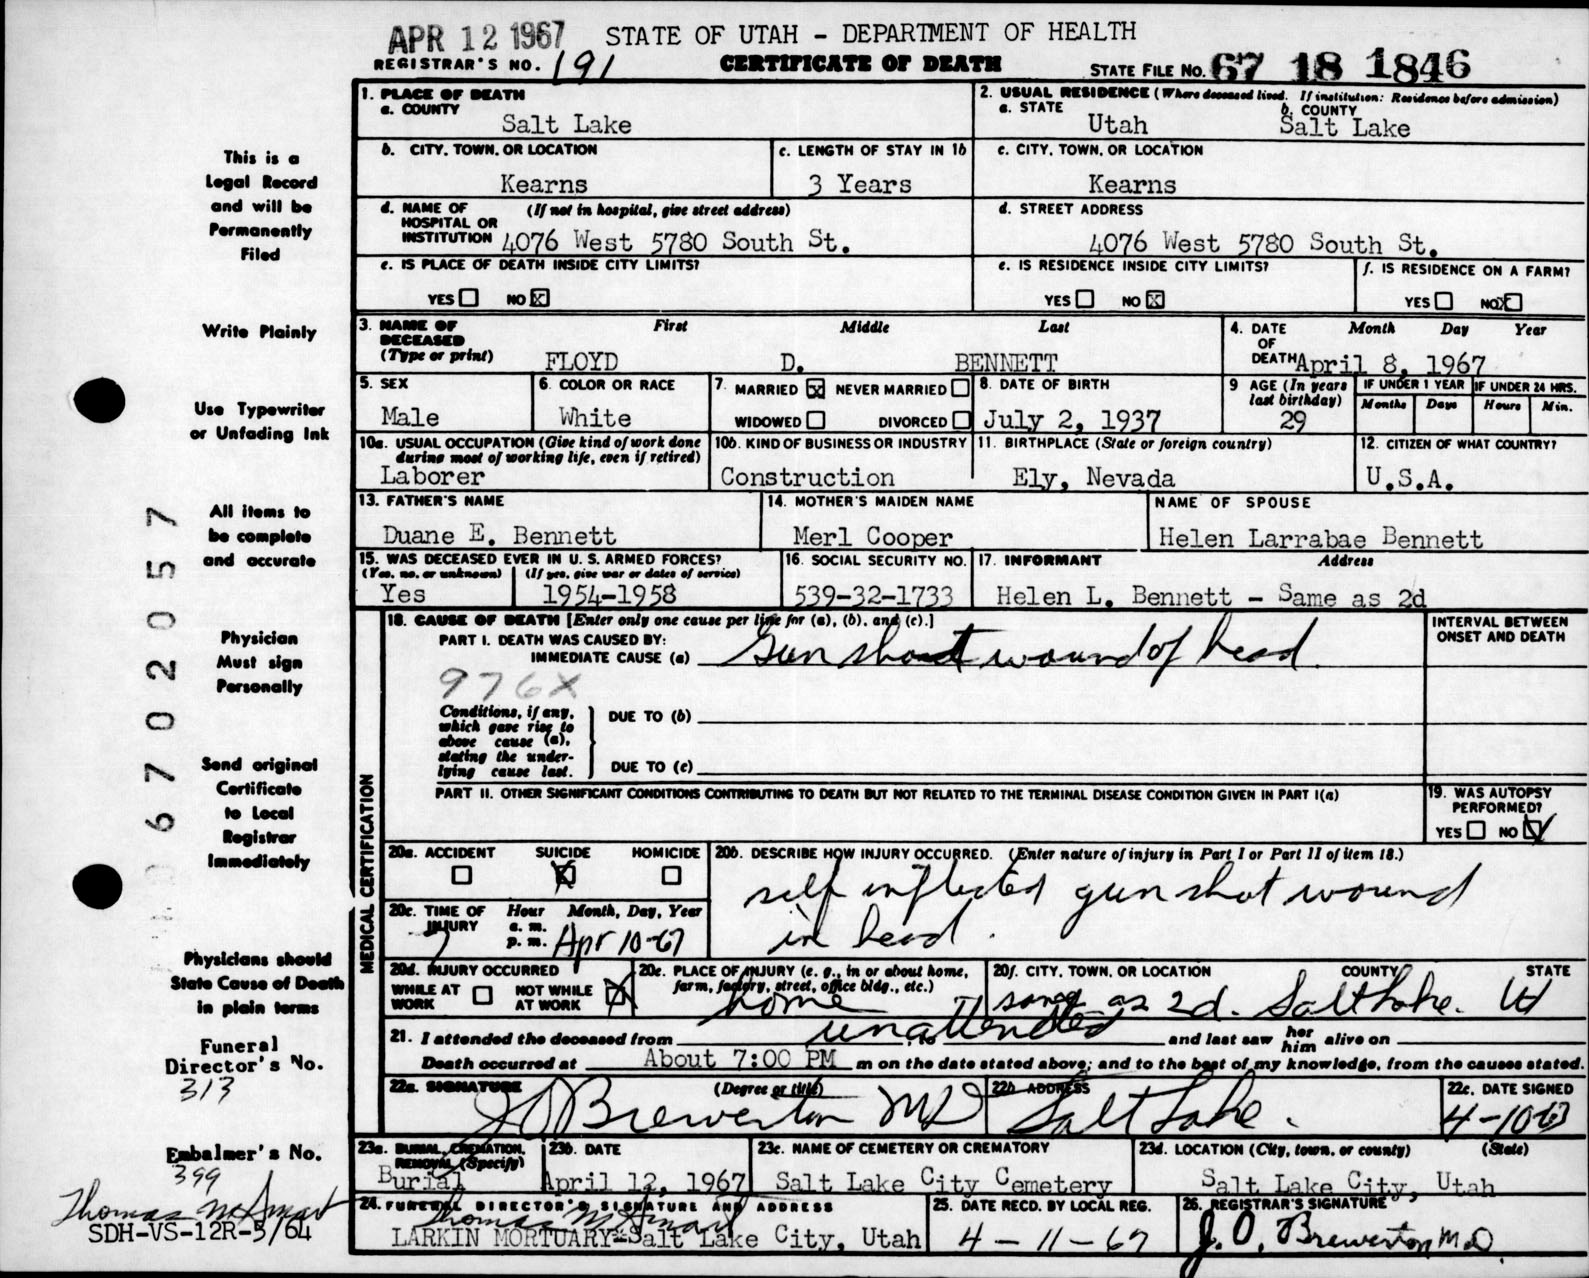 APR 12 1967 STATE OF UTAH - DEPARTMENT OF HEALTH
REGISTRAR'S NO. 191 CERTIFICATE OF DEATH STATE FILE NO. 67 18 1846
This is a
Legal Record
and will be
Permanently
Filed
Write Plainly
Use Typewriter
or Unfading Ink
All items to
be complete
and accurate
Physician
Must sign
Personally
Send original
Certificate
to Local
Registrar
Immediately
Physicians should
State Cause of Death
in plain terms
Funeral
Director's No.
313
Embalmer's No.
399
Thomas McSmart
SDH-VS-12R-3/64
6702057
1. PLACE OF DEATH
a. COUNTY
Salt Lake
2. USUAL RESIDENCE (Where deceased lived. If institution: Residence before admission)
a. STATE b. COUNTY
Utah Salt Lake
b. CITY, TOWN, OR LOCATION c. LENGTH OF STAY IN 1b c. CITY, TOWN, OR LOCATION
Kearns 3 Years Kearns
d. NAME OF (If not in hospital, give street address) d. STREET ADDRESS
HOSPITAL OR
INSTITUTION 4076 West 5780 South St. 4076 West 5780 South St.
e. IS PLACE OF DEATH INSIDE CITY LIMITS? e. IS RESIDENCE INSIDE CITY LIMITS? f. IS RESIDENCE ON A FARM?
YES NO X YES NO X YES NO X
3. NAME OF First Middle Last 4. DATE Month Day Year
DECEASED OF
(Type or print) FLOYD D. BENNETT DEATH April 8, 1967
5. SEX 6. COLOR OR RACE 7. MARRIED X NEVER MARRIED 8. DATE OF BIRTH 9 AGE (In years last birthday) IF UNDER 1 YEAR IF UNDER 24 HRS.
Months Days Hours Min.
Male White WIDOWED DIVORCED July 2, 1937 29
10a. USUAL OCCUPATION (Give kind of work done 10b. KIND OF BUSINESS OR INDUSTRY 11. BIRTHPLACE (State or foreign country) 12. CITIZEN OF WHAT COUNTRY?
during most of working life, even if retired)
Laborer Construction Ely, Nevada U.S.A.
13. FATHER'S NAME 14. MOTHER'S MAIDEN NAME NAME OF SPOUSE
Duane E. Bennett Merl Cooper Helen Larrabae Bennett
15. WAS DECEASED EVER IN U.S. ARMED FORCES? 16. SOCIAL SECURITY NO. 17. INFORMANT Address
(Yes, no, or unknown) (If yes, give war or dates of service)
Yes 1954-1958 539-32-1733 Helen L. Bennett - Same as 2d
MEDICAL CERTIFICATION
18. CAUSE OF DEATH [Enter only one cause per line for (a), (b), and (c).] INTERVAL BETWEEN
PART I. DEATH WAS CAUSED BY: ONSET AND DEATH
IMMEDIATE CAUSE (a) Gun shoot wound of head.
976X
Conditions, if any,
which gave rise to
above cause (a),
stating the under-
lying cause last.
DUE TO (b)
DUE TO (c)
PART II. OTHER SIGNIFICANT CONDITIONS CONTRIBUTING TO DEATH BUT NOT RELATED TO THE TERMINAL DISEASE CONDITION GIVEN IN PART I(a)
19. WAS AUTOPSY
PERFORMED?
YES NO
20a. ACCIDENT SUICIDE HOMICIDE 20b. DESCRIBE HOW INJURY OCCURRED. (Enter nature of injury in Part I or Part II of item 18.)
X
self inflicted gun shot wound
in head.
20c. TIME OF Hour Month, Day, Year
INJURY a. m.
? p. m. Apr 10-67
20d. INJURY OCCURRED 20e. PLACE OF INJURY (e. g., in or about home, 20f. CITY, TOWN, OR LOCATION COUNTY STATE
WHILE AT NOT WHILE X farm, factory, street, office bldg., etc.)
WORK AT WORK home same as 2d. Salt Lake. Ut
21. I attended the deceased from unattended to and last saw her him alive on
Death occurred at About 7:00 PM m on the date stated above; and to the best of my knowledge, from the causes stated.
22a. SIGNATURE (Degree or title) 22b ADDRESS 22c. DATE SIGNED
JO Brewerton MD Salt Lake. 4-10-67
23a. BURIAL, CREMATION, 23b. DATE 23c. NAME OF CEMETERY OR CREMATORY 23d. LOCATION (City, town, or county) (State)
REMOVAL (Specify)
Burial April 12, 1967 Salt Lake City Cemetery Salt Lake City, Utah
24. FUNERAL DIRECTOR'S SIGNATURE AND ADDRESS 25. DATE RECD. BY LOCAL REG. 26. REGISTRAR'S SIGNATURE
Thomas McSmart
LARKIN MORTUARY-Salt Lake City, Utah 4-11-67 J. O. Brewerton M.D